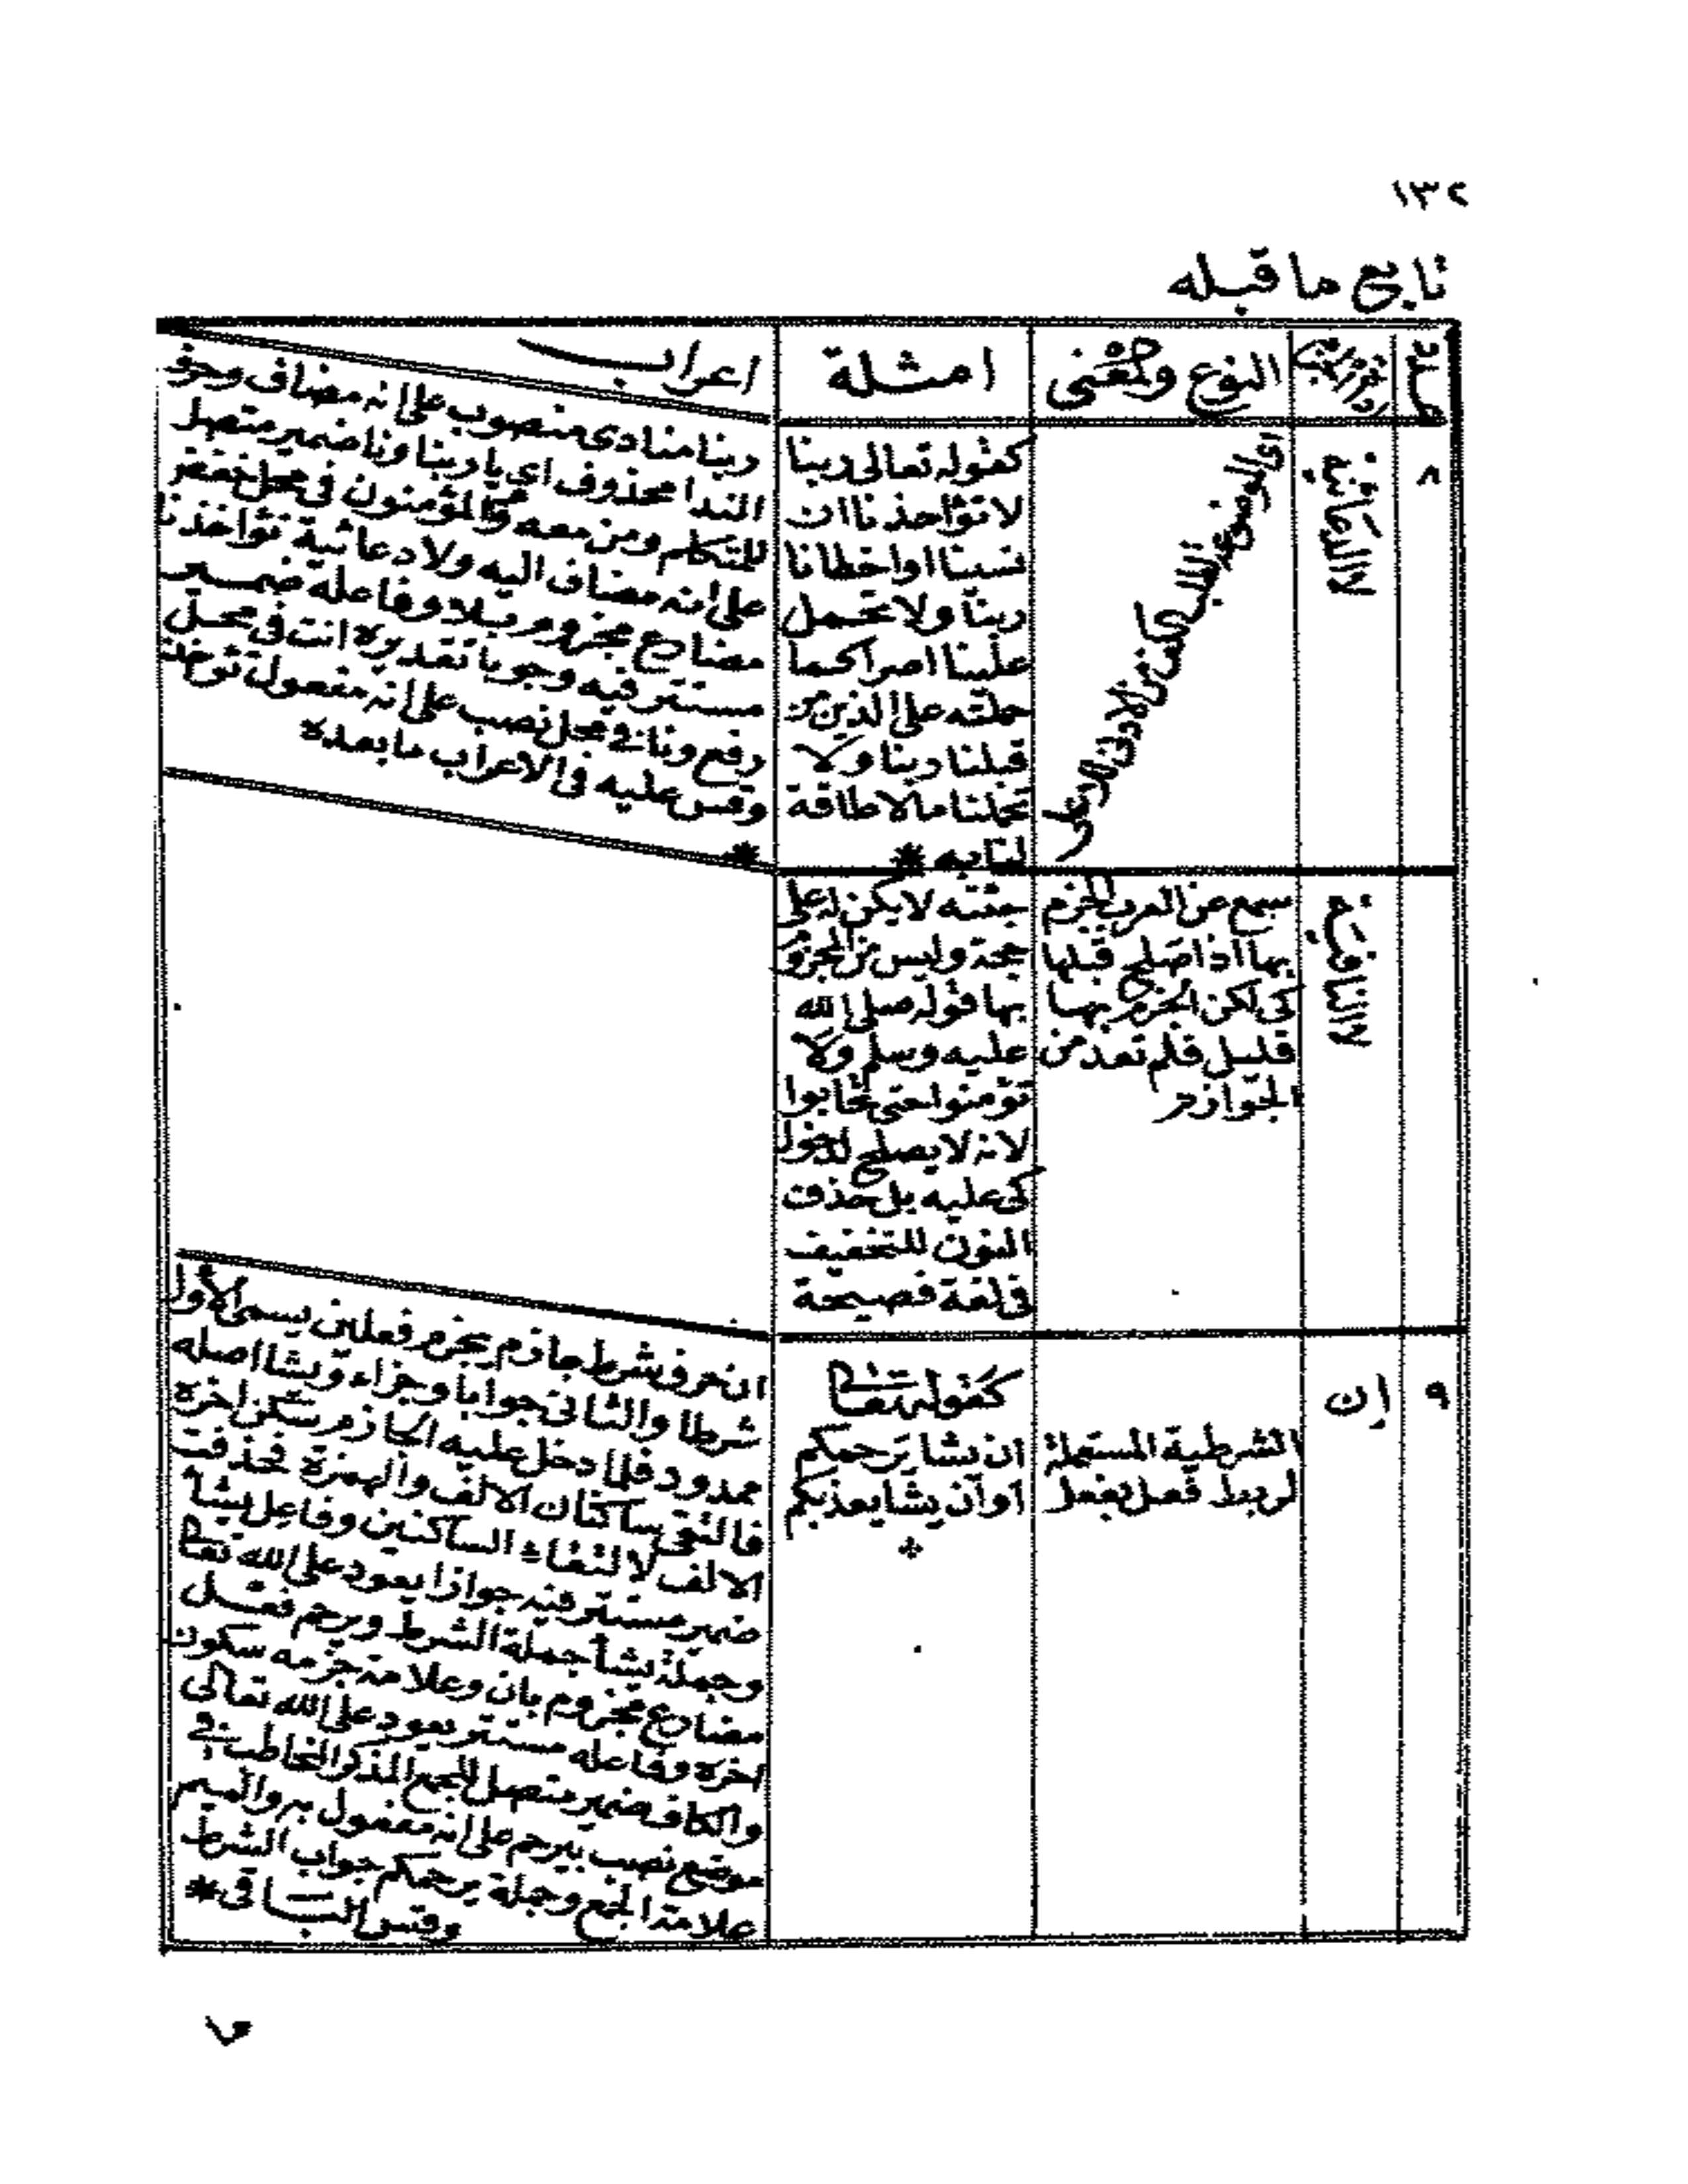 ١٣٢
تابع ما قبله
عدد
النوع والمعنى
امثلة
اعراب
٨
لا الدعائية
اى الموضوعة لطلب الكف من الادنى للاعلى
كقوله تعالى ربنا
لا تؤاخذنا ان
نسينا او اخطانا
ربنا ولا تحمل
علينا اصرا كما
حملته على الذين من
قبلنا ربنا ولا
تحملنا ما لا طاقة
لنا به *
ربنا منادى منصوب على انه مضاف وحرف
الندا محذوف اى يا ربنا ونا ضمير متصل
للمتكلم ومن معه والمؤمنون فى محل خفض
على انه مضاف اليه ولا دعائية تؤاخذنا
مضارع مجزوم بلا وفاعله ضمير
مستتر فيه وجوبا تقديره انت فى محل
رفع ونا فى محل نصب على انه مفعول تؤاخذ
وقس عليه فى الاعراب ما بعده
*
لا النافية
سمع عن العرب الجزم
بها اذا صلح قبلها
كى لكن الجزم بها
قليل فلم تعد من
الجوازم
جئته لا يكن له على
حجة وليس من المجزوم
بها قوله صلى الله
عليه وسلم ولا
تؤمنوا حتى تحابوا
لانه لا يصلح لدخول
كى عليه بل حذفت
النون للتخفيف
فى لغة فصيحة
٩
إن
الشرطية المستعملة
لربط فعل بفعل
كقوله تعالى
ان يشا يرحمكم
او ان يشا يعذبكم
ان حرف شرط جازم يجزم فعلين يسمى الاول
شرطا والثانى جوابا وجزاء ويشا اصله
ممدود فلما دخل عليه الجازم سكن اخره
فالتقى ساكنان الالف والهمزة فحذفت
الالف لالتقاء الساكنين وفاعل يشأ
ضمير مستتر فيه جوازا يعود على الله تعالى
وجملة يشأ جملة الشرط ويرحم فعل
مضارع مجزوم بان وعلامة جزمه سكون
اخره وفاعله مستتر يعود على الله تعالى
والكاف ضمير متصل للجمع المذكر المخاطب فى
موضع نصب بيرحم على انه مفعول به والميم
علامة الجمع وجملة يرحمكم جواب الشرط
وقس الباقى *